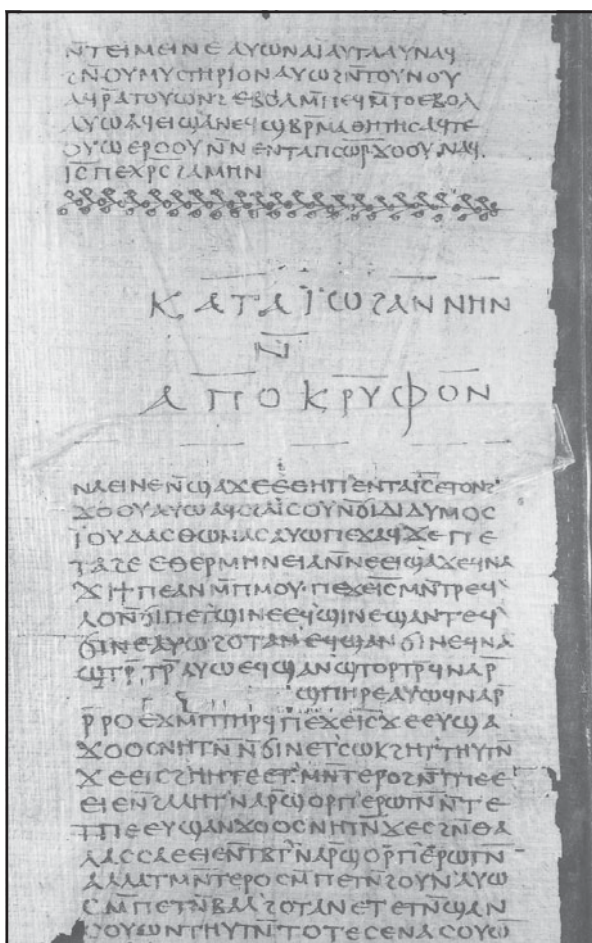 ⲛ̄ⲧⲉⲓⲙⲉⲓⲛⲉⲁⲩⲱⲛⲁⲓⲁⲩⲧⲁⲁⲩⲛⲁϥ
ϩⲛ̄ⲟⲩⲙⲩⲥⲧⲏⲣⲓⲟⲛⲁⲩⲱϩⲛ̄ⲧⲟⲩⲛⲟⲩ
ⲁϥⲣ̄ⲁⲧⲟⲩⲱⲛϩⲉⲃⲟⲗⲙ̄ⲡⲉϥⲙ̄ⲧⲟⲉⲃⲟⲗ
ⲁⲩⲱⲁϥⲉⲓϣⲁⲛⲉϥϣⲃⲣ̄ⲙⲁⲑⲏⲧⲏⲥⲁϥⲧⲉ
ⲟⲩⲱⲉⲣⲟⲟⲩⲛ̄ⲛⲉⲛⲧⲁⲡⲥⲱⲣ̄ϫⲟⲟⲩⲛⲁϥ
ⲓⲥ̄ⲡⲉⲭⲣ̄ⲥϩⲁⲙⲏⲛ
ⲕⲁⲧⲁⲓ̈ⲱϩⲁⲛⲛⲏⲛ
ⲛ̄
ⲁⲡⲟⲕⲣⲩⲫⲟⲛ
ⲛⲁⲉⲓⲛⲉⲛ̄ϣⲁϫⲉⲉⲑⲏⲡ·ⲉⲛⲧⲁⲓⲥ̄ⲉⲧⲟⲛϩ
ϫⲟⲟⲩⲁⲩⲱⲁϥⲥϩⲁⲓⲥⲟⲩⲛ̄ϭⲓⲇⲓⲇⲩⲙⲟⲥ
ⲓ̈ⲟⲩⲇⲁⲥⲑⲱⲙⲁⲥⲁⲩⲱⲡⲉϫⲁϥϫⲉⲡⲉ
ⲧⲁϩⲉⲉⲑⲉⲣⲙⲏⲛⲉⲓⲁⲛ̄ⲛⲉⲉⲓϣⲁϫⲉϥⲛⲁ
ϫⲓϯⲡⲉⲁⲛⲙ̄ⲡⲙⲟⲩ·ⲡⲉϫⲉⲓⲥ̄ⲙⲛ̄ⲧⲣⲉϥ
ⲗⲟⲛ̄ϭⲓⲡⲉⲧϣⲓⲛⲉⲉϥϣⲓⲛⲉϣⲁⲛⲧⲉϥ
ϭⲓⲛⲉⲁⲩⲱϩⲟⲧⲁⲛⲉϥϣⲁⲛϭⲓⲛⲉϥⲛⲁ
ϣⲧⲣ̄ⲧⲣ̄ⲁⲩⲱⲉϥϣⲁⲛϣⲧⲟⲣⲧⲣ̄ϥⲛⲁⲣ̄
ϣⲡⲏⲣⲉⲁⲩⲱϥⲛⲁⲣ̄
ⲣ̄ⲣⲟⲉϫⲙ̄ⲡⲧⲏⲣϥⲡⲉϫⲉⲓⲥ̄ϫⲉⲉⲩϣⲁ
ϫⲟⲟⲥⲛⲏⲧⲛ̄ⲛ̄ϭⲓⲛⲉⲧⲥⲱⲕϩⲏⲧⲧⲏⲩⲧⲛ̄
ϫⲉⲉⲓⲥϩⲏⲏⲧⲉⲉⲧⲙⲛ̄ⲧⲉⲣⲟϩⲛ̄ⲧⲡⲉⲉ
ⲉⲓⲉⲛ̄ϩⲁⲗⲏⲧⲛⲁⲣ̄ϣⲟⲣⲡⲉⲣⲱⲧⲛ̄ⲛ̄ⲧⲉ
ⲧⲡⲉⲉⲩϣⲁⲛϫⲟⲟⲥⲛⲏⲧⲛ̄ϫⲉⲥϩⲛ̄ⲑⲁ
ⲗⲁⲥⲥⲁⲉⲉⲓⲉⲛ̄ⲧⲃⲧⲛⲁⲣ̄ϣⲟⲣⲡⲉⲣⲱⲧⲛ̄
ⲁⲗⲗⲁⲧⲙⲛ̄ⲧⲉⲣⲟⲥⲙ̄ⲡⲉⲧⲛ̄ϩⲟⲩⲛⲁⲩⲱ
ⲥⲙ̄ⲡⲉⲧⲛ̄ⲃⲁⲗϩⲟⲧⲁⲛⲉⲧⲉⲧⲛ̄ϣⲁⲛ
ⲥⲟⲩⲱⲛⲧⲏⲩⲧⲛ̄ⲧⲟⲧⲉⲥⲉⲛⲁⲥⲟⲩⲱ